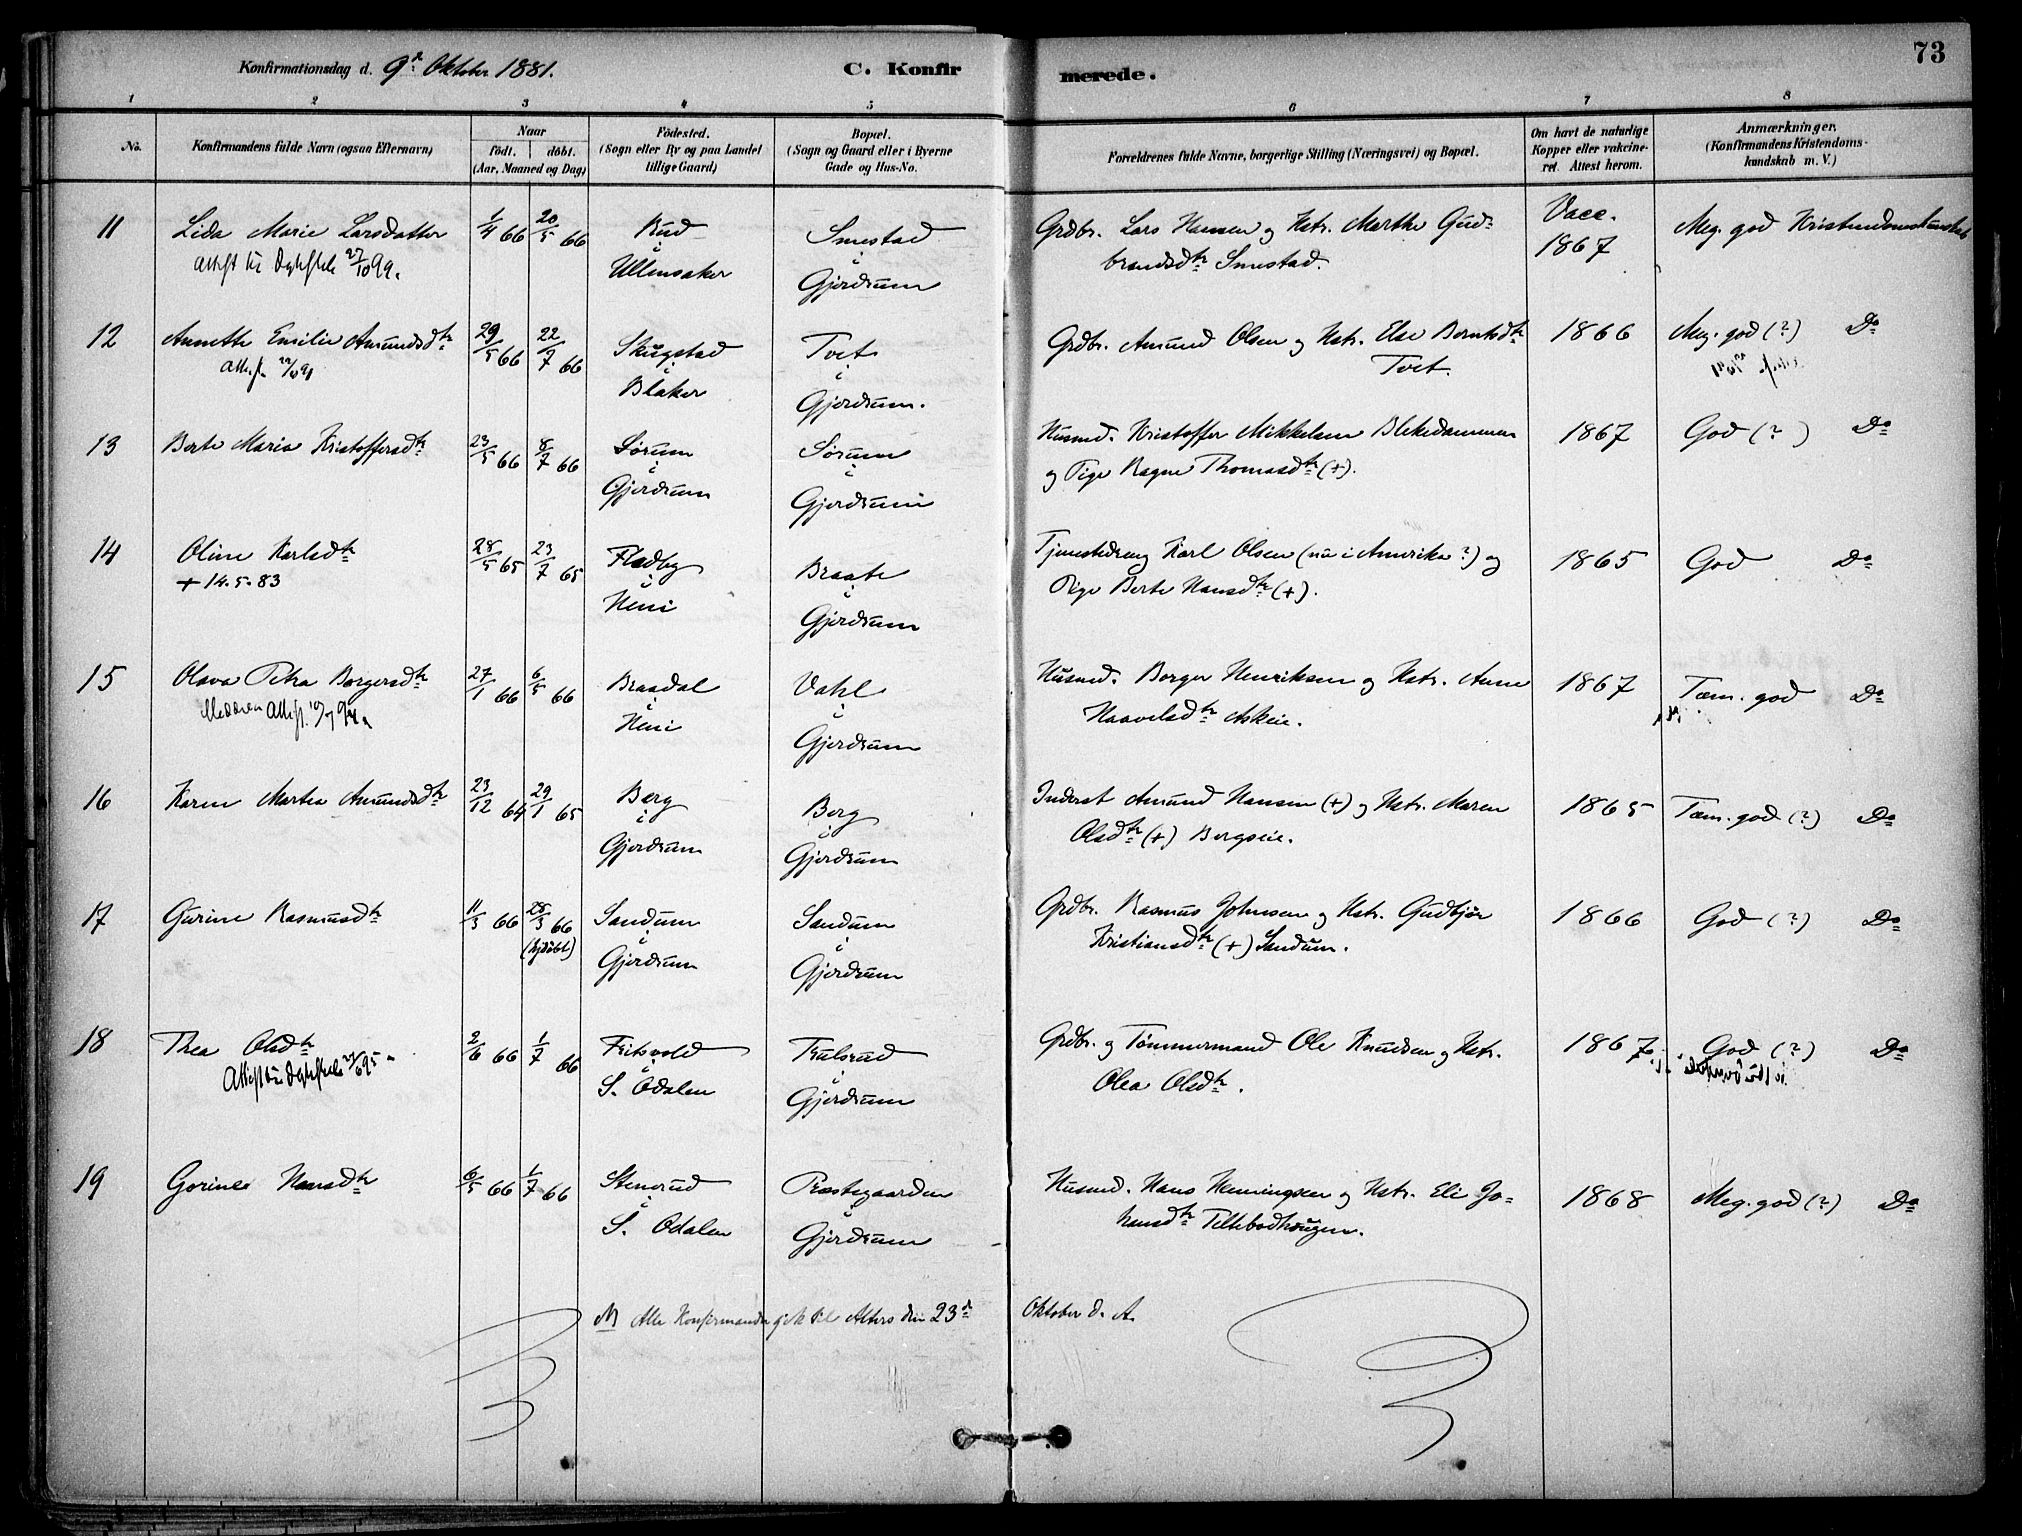 73
Konfirmationsdag d. 9de Oktober 1881.
C. Konfirmerede.
1 2 3 4 5 6 7 8
No.
Konfirmandens fulde Navn (ogsaa Efternavn)
Naar
födt. döbt.
(Aar, Maaned og Dag)
Födested.
(Sogn eller By og paa Landet
tillige Gaard)
Bopæl.
(Sogn og Gaard eller i Byerne
Gade og Hus-No.
Forældrenes fulde Navne, borgerlige Stilling (Næringsvei) og Bopæl.
Om havt de naturlige
Kopper eller vakcine-
ret. Attest herom.
Anmærkninger.
(Konfirmandens Kristendoms-
kundskab m. V.)
11 Lida Marie Larsdatter 1/4 66 20/5 66 Rud i Ullensaker Smestad i Gjerdrum Grdbr. Lars Hansen og Hstr. Marthe Gud-
brandsdtr Smestad. Vacc. 1867 Meg. god Kristendomskundskab
Attest til Ægteskab 27/10 99.
12 Annette Emilie Amundsdtr 29/5 66 22/7 66 Skugstad i Blaker Tvet i Gjerdrum. Grdbr. Amund Olsen og Hstr. Else Berntsdtr
Tvet. 1866 Meg. god (?) Do
Attest
13 Berte Maria Kristoffersdtr 23/5 66 8/7 66 Sørum i Gjerdrum Sørum i Gjerdrum Husmd. Kristoffer Mikkelsen Blekedammen
og Pige Ragne Thomasdtr (+). 1867 God (?) Do
14 Oline Karlsdtr 28/5 65 23/7 65 Fladby i Neni Braate i Gjerdrum Tjenestedreng Karl Olsen (nu i Amerika?) og
Pige Berte Hansdtr (+). 1865 God Do
+ 14.5.83
15 Olava Petra Borgersdtr 27/1 66 6/5 66 Braadal i Neni Vahl i Gjerdrum Husmd. Borger Henriksen og Hstr. Anne
Haavelsdtr Askeie. 1867 Tæm. god Do
Attest.
16 Karen Martea Amundsdtr 23/12 64 29/1 65 Berg i Gjerdrum Berg i Gjerdrum Inderst Amund Hansen (+) og Hstr. Maren
Olsdtr (+) Bergseie. 1865 Tæm. god (?) Do
17 Gurine Rasmusdtr 11/3 66 28/3 66 (hjdøbt) Sandum i Gjerdrum Sandum i Gjerdrum Grdbr. Rasmus Johnsen og Hstr. Gudbjør
Kristiansdtr (+) Sandum. 1866 God (?) Do
18 Thea Olsdtr 2/6 66 1/7 66 Fritsvold i S. Odalen Trulsrud i Gjerdrum Grdbr. og Tømmermand Ole Knudsen og Hstr.
Olea Olsdtr. 1867 God (?) Do
Attest til Ægteskab
19 Gorine Hansdtr 6/5 66 1/7 66 Stenerud i S. Odalen Præstegaarden i Gjerdrum Husmd. Hans Henningsen og Hstr. Eli Jo-
hansdtr Teltebadhaugen. 1868 Meg. god (?) Do
Alle Konfirmander gik til Alters den 23de Oktober d. A.